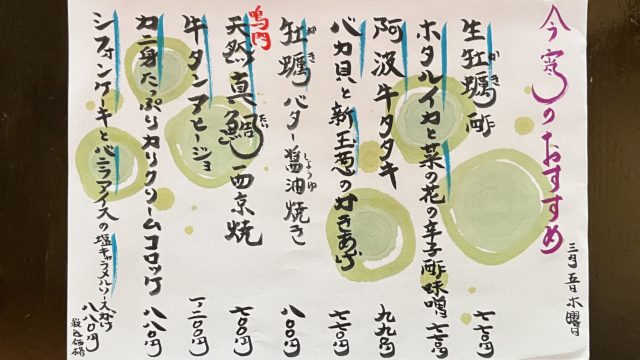 今宵のおすすめ
三月五日木曜日
生牡蠣酢 七七〇円
かき
ホタルイカと菜の花の辛子酢味噌 七七〇円
阿波牛タタキ 九九〇円
バカ貝と新玉葱のかきあげ 七七〇円
牡蠣バター醤油焼き 八八〇円
かき
しょうゆ
鳴門
天然真鯛西京焼 七七〇円
だい
牛タンアヒージョ 一二〇〇円
カニ身たっぷりカリクリームコロッケ 八八〇円
シフォンケーキとバニラアイスの塩キャラメルソースがけ 八八〇円
税込価格